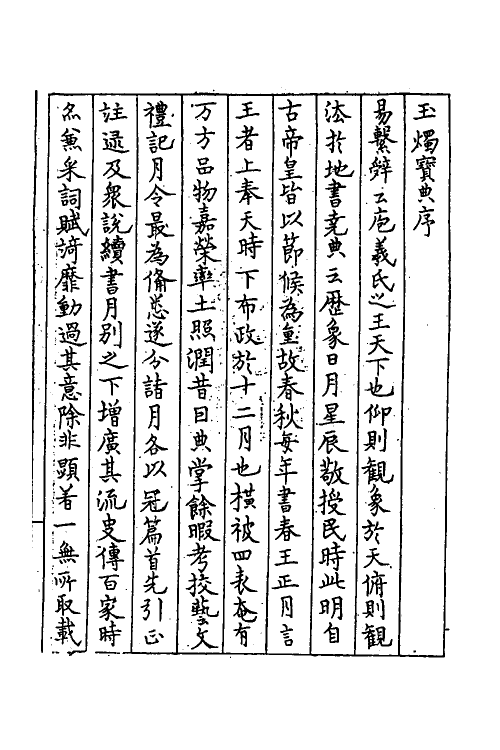 玉燭寶典序
易繫辤云庖義氏之王天下也仰則観象於天俯則観
法扵地書尭典云歴象日月星辰敬授民時此明自
古帝皇皆以節候為重故春秋每年書春王正月言
王者上奉天時下布政於十二月也橫被四表奄有
万方品物嘉榮率土照潤昔因典掌餘暇考挍藝文
禮記月令最為俻悉遂分諸月各以冠篇首先引正
註逯及衆說續書月別之下增廣其流史傳百家時
亦兼采詞賦綺靡動過其意除非顯著一無所取載